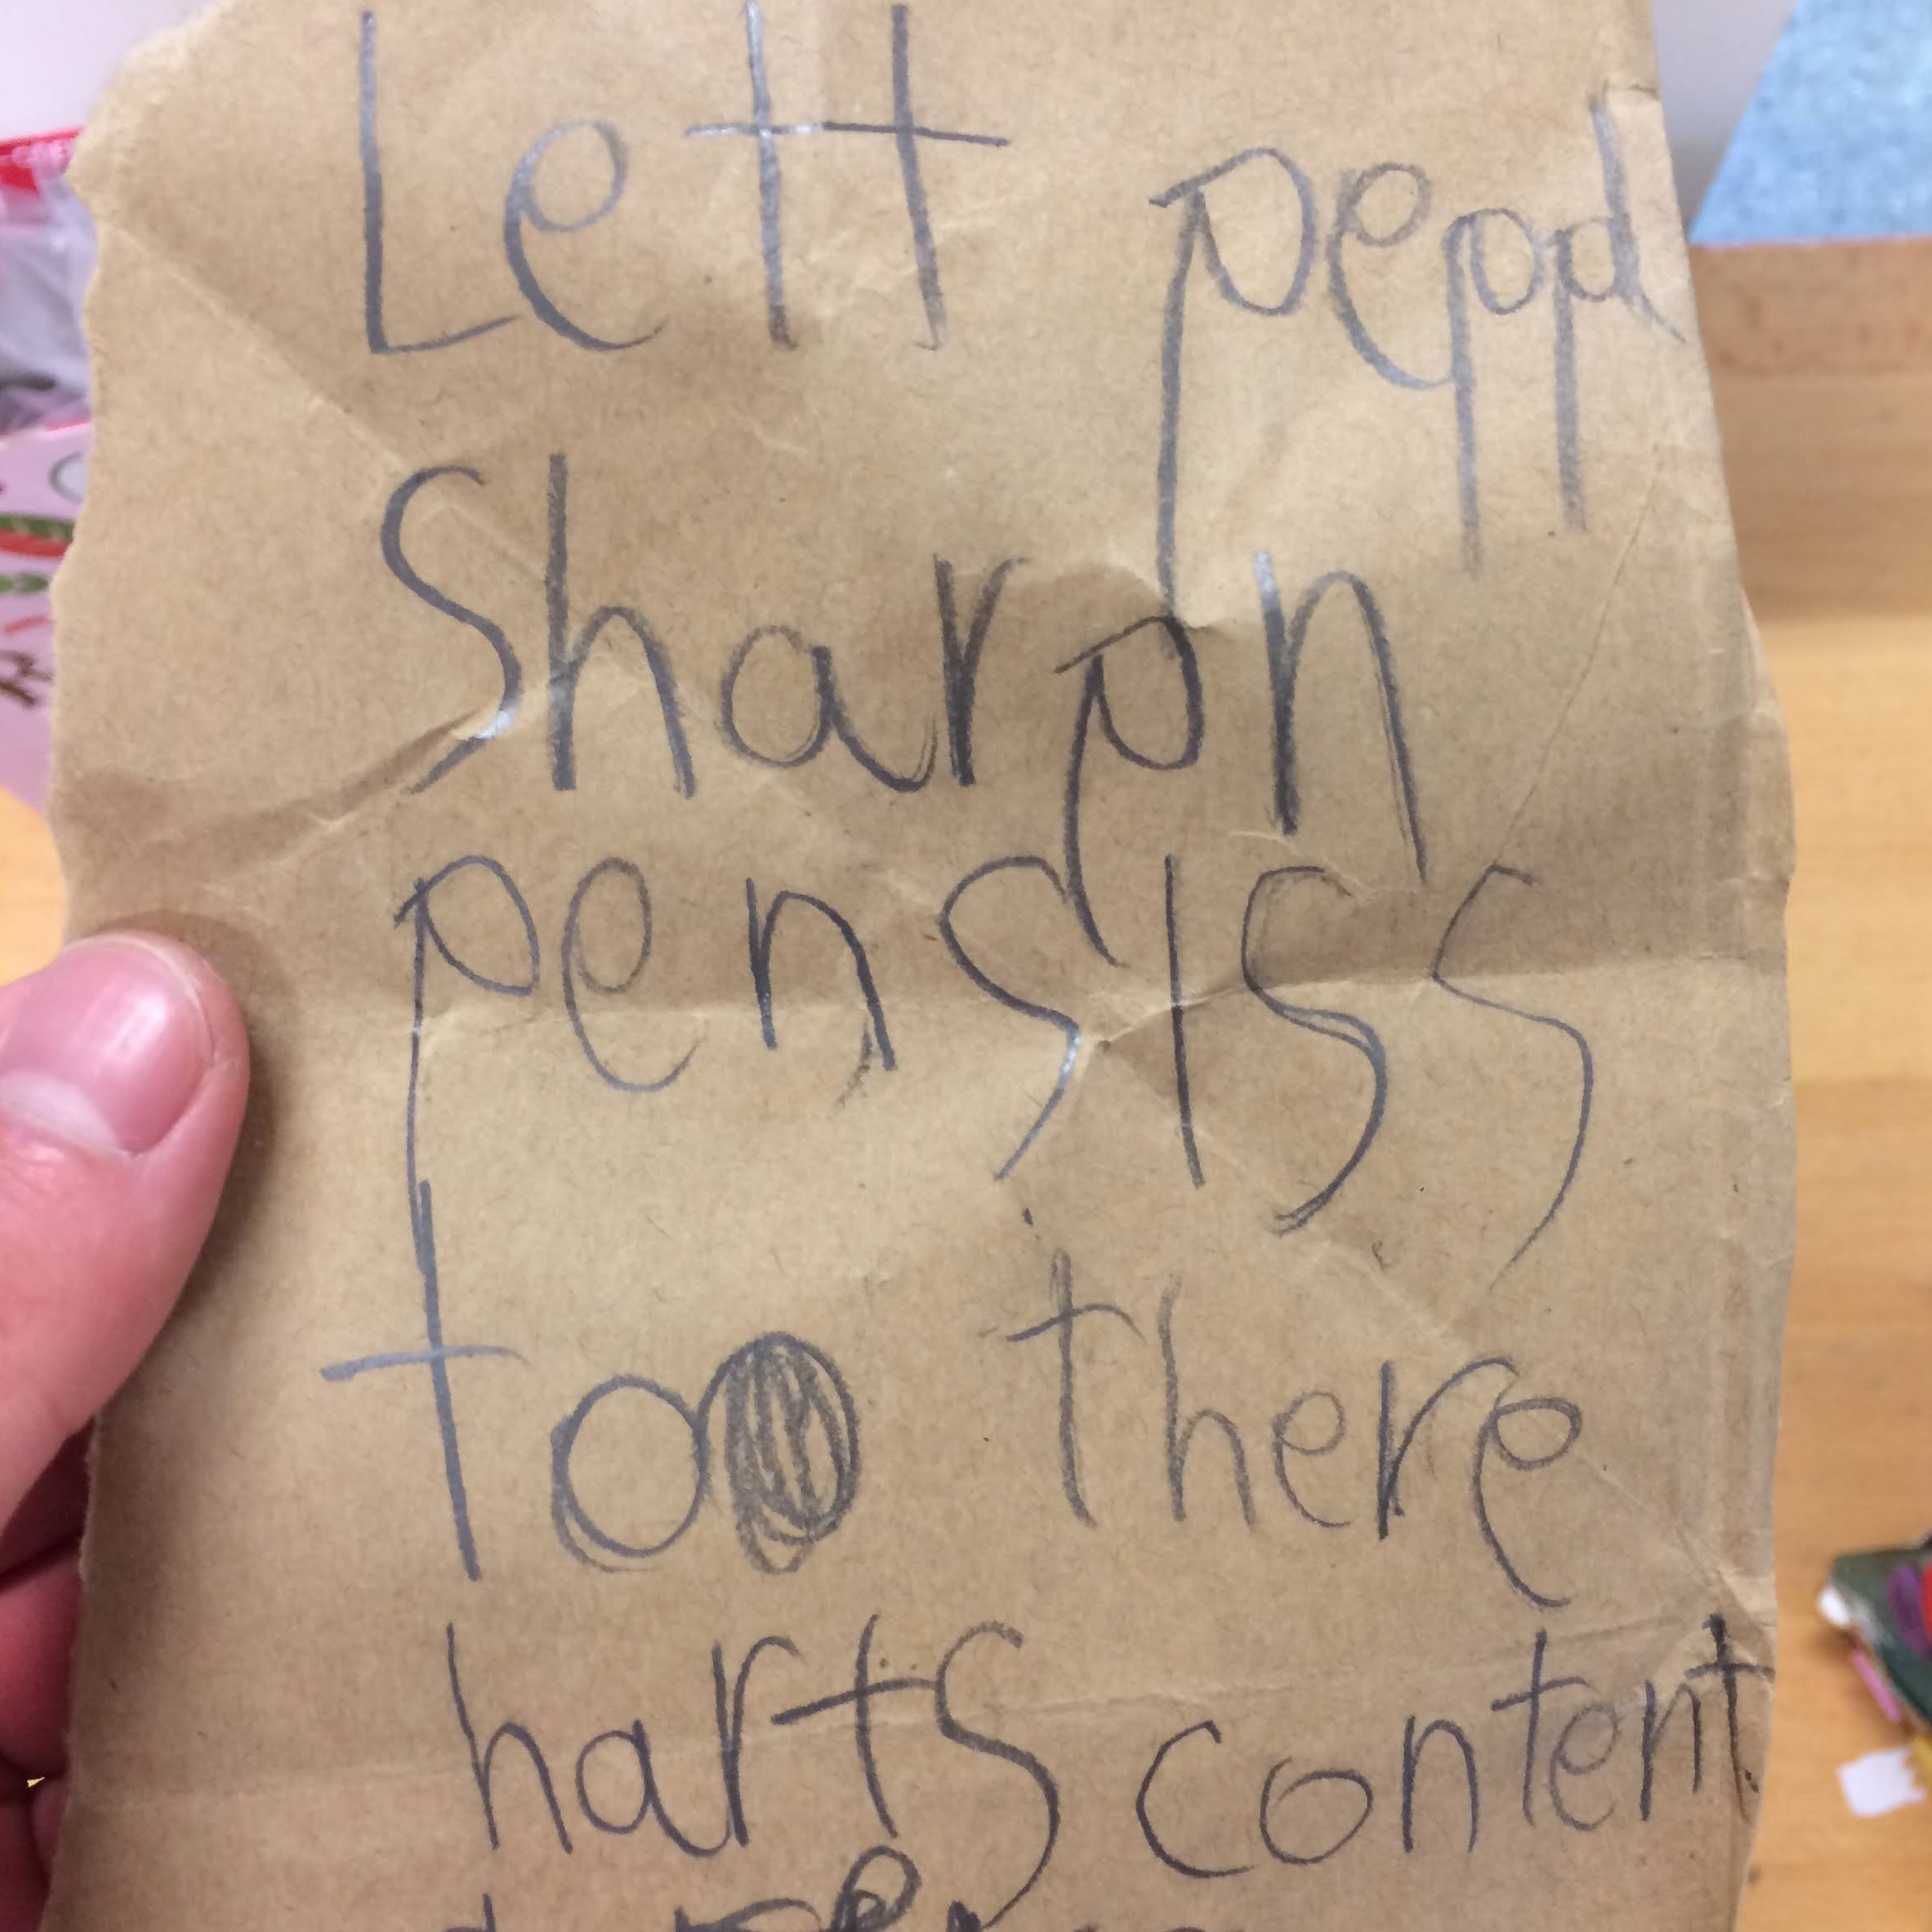 Lett pepol
Sharpn
pensiss
to there
harts content